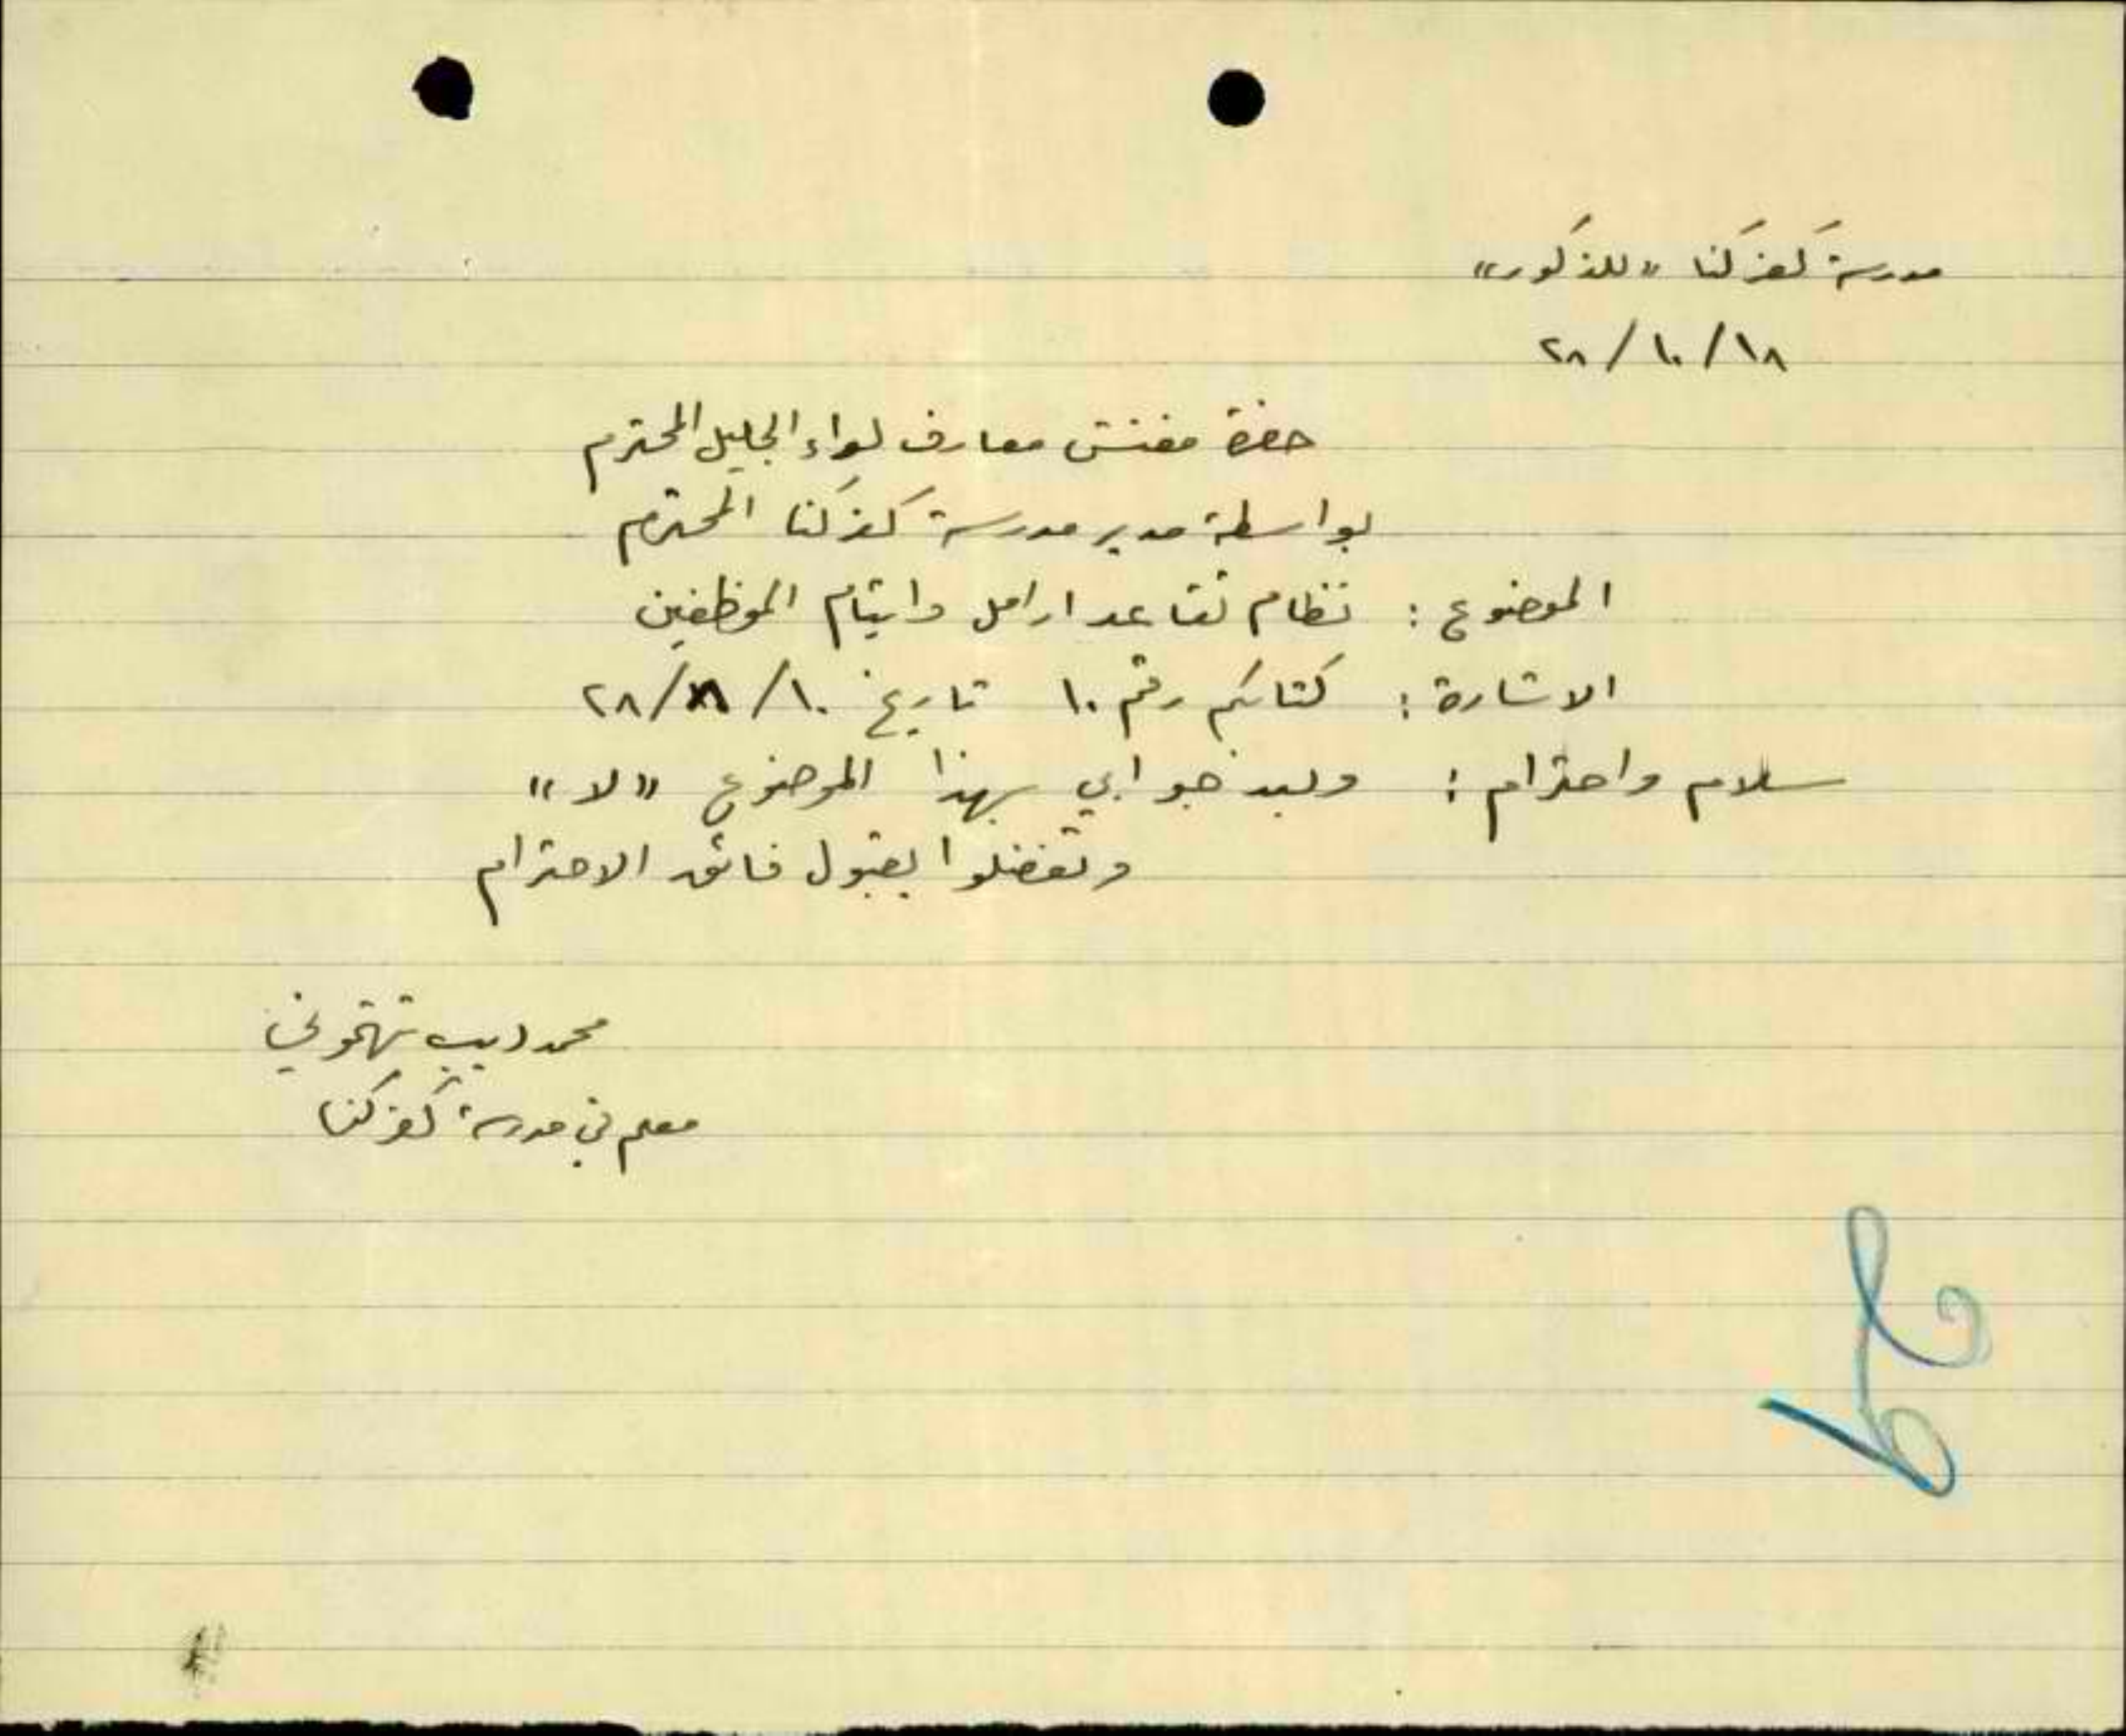 مدرسة كفركنا "للذكور"
١٨/١٠/٢٨
حضرة مفتش معارف لواء الجليل المحترم
بواسطة مدير مدرسة كفركنا المحترم
الموضوع : نظام تقاعد ارامل وايتام الموظفين
الاشارة : كتابكم رقم ١٠ تاريخ ١٠/٨/٢٨
سلام واحترام : وبعد جوابي بهذا الموضوع "لا"
وتفضلوا بقبول فائق الاحترام
محمد ديب
معلم في مدرسة كفركنا